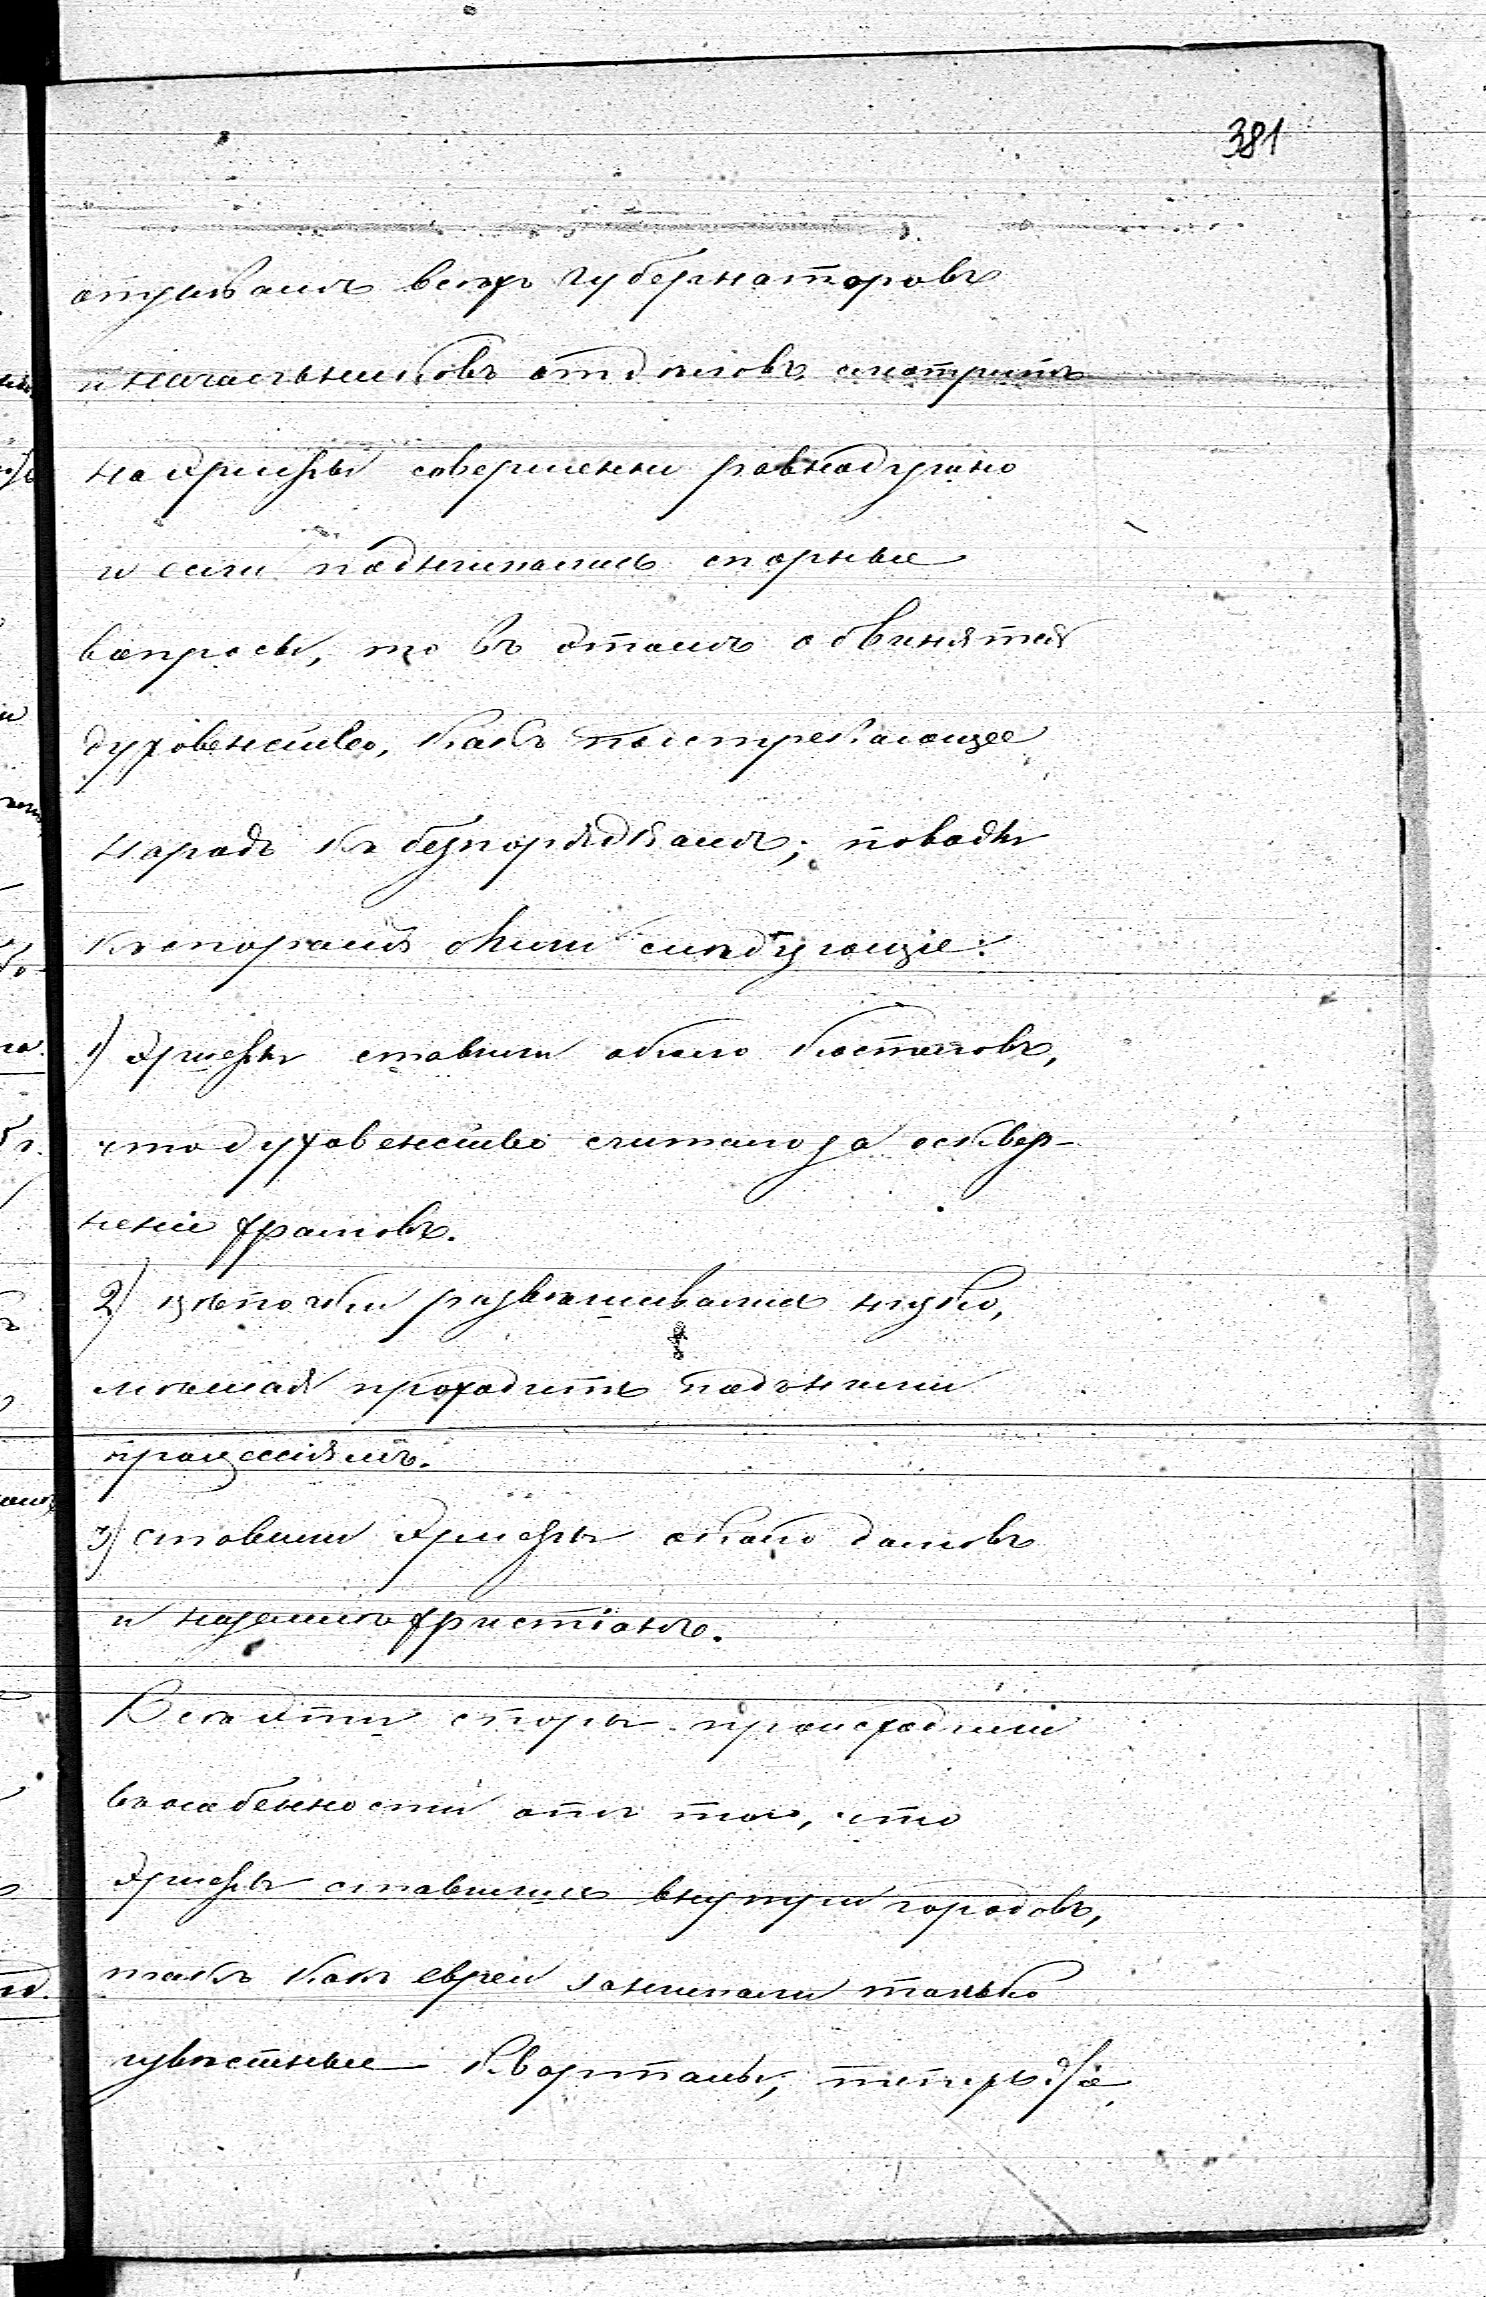 381
отзывамъ всѣхъ губернаторовъ
и начальниковъ отдѣловъ смотритъ
на эрувы совершенно равнодушно
и если поднимались спорные
вопросы, то въ этомъ обвиняютъ
духовенство, какъ подстрекающее
народъ къ безпорядкамъ; поводы
къ спорамъ были слѣдующіе:
1) Эрувы ставили около костеловъ,
что духовенство считало за осквер-
неніе храмовъ.
2) цѣпочки развѣшивались низко,
мѣшая проходить подъ ними
процессіямъ.
3) ставили эрувы около домовъ
и на земляхъ христіанъ.
Всѣ эти споры происходили
въ особенности отъ того, что
эрувы ставились внутри городовъ,
такъ какъ евреи занимали только
извѣстные кварталы, теперь же,